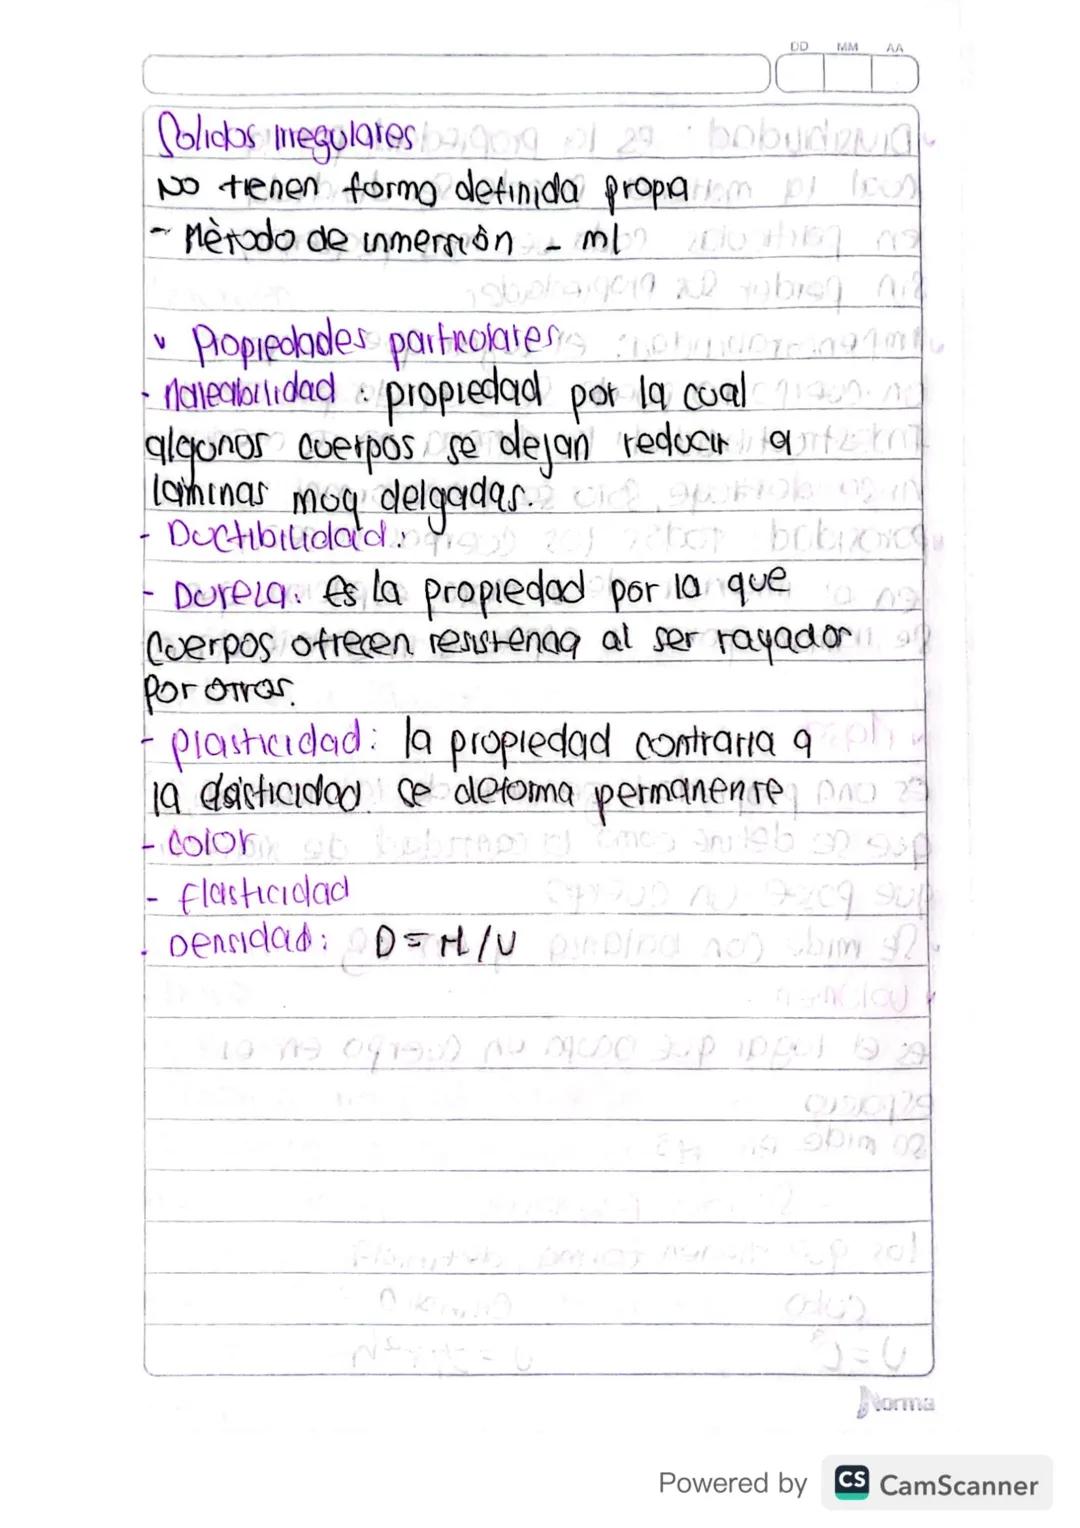 DD MM AA
Solidos irregulares
No tienen forma definida propia
- Mètodo de inmersión - ml
v Propiedades particulares
- Maleabilidad : propiedad por la cual
algunos cuerpos se dejan reducir a
laminas muy delgadas.
- Ductibilidad:
- Dureza. Es la propiedad por la que
Cuerpos ofrecen resistencia al ser rayador
por otros.
- plasticidad: la propiedad contraria a
la elasticidad se deforma permanente
- color
- Elasticidad
. Densidad: D = M / V
Norma
Powered by CS CamScanner